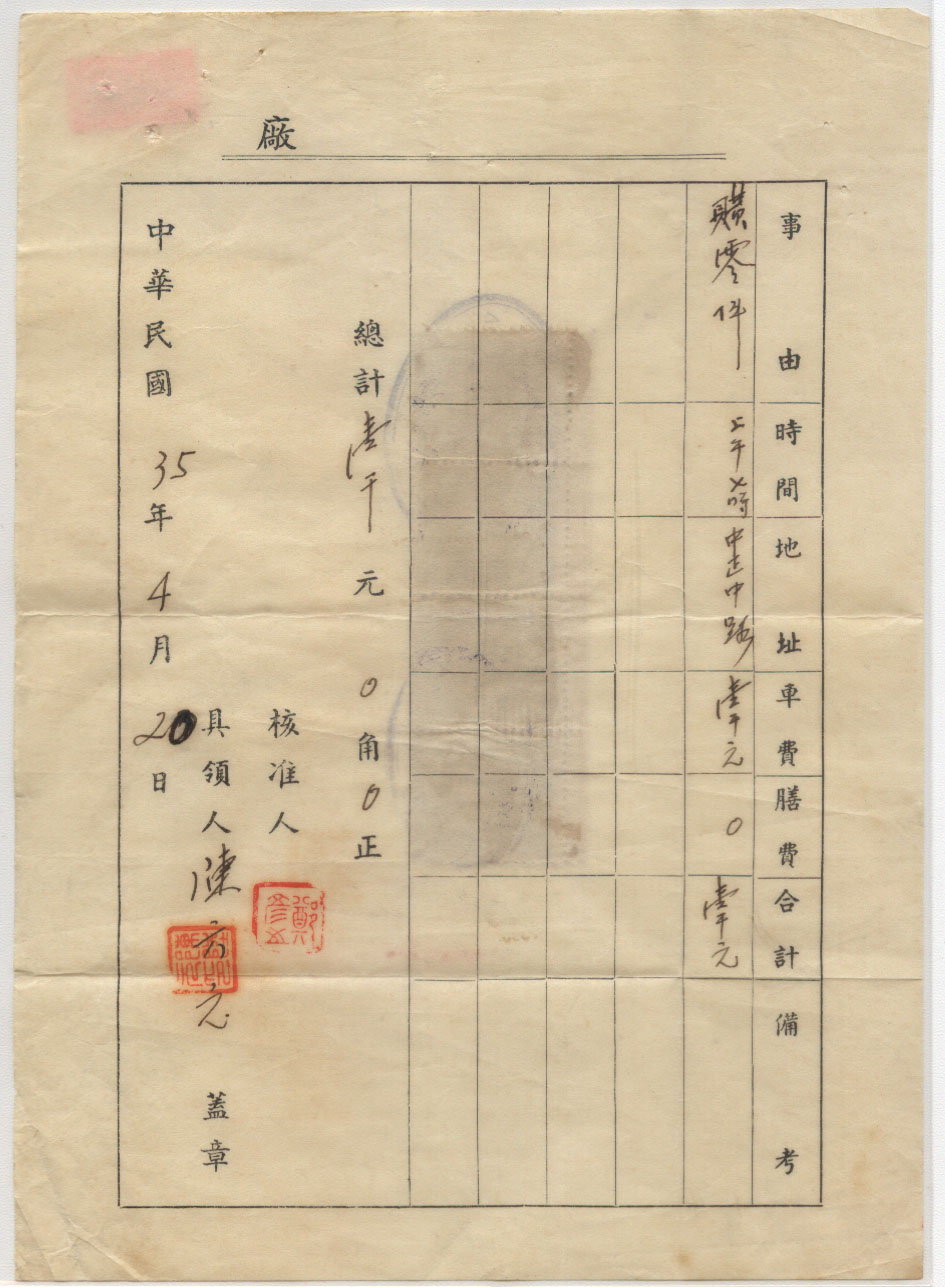 廠
事由 時間 地址 車費 膳費 合計 備考
購零件 上午 時 中正中路 壹千元 0 壹千元
總計壹千元0角0正
核准人 鄭
具領人 陳 元 蓋章
中華民國 35年 4月 20日